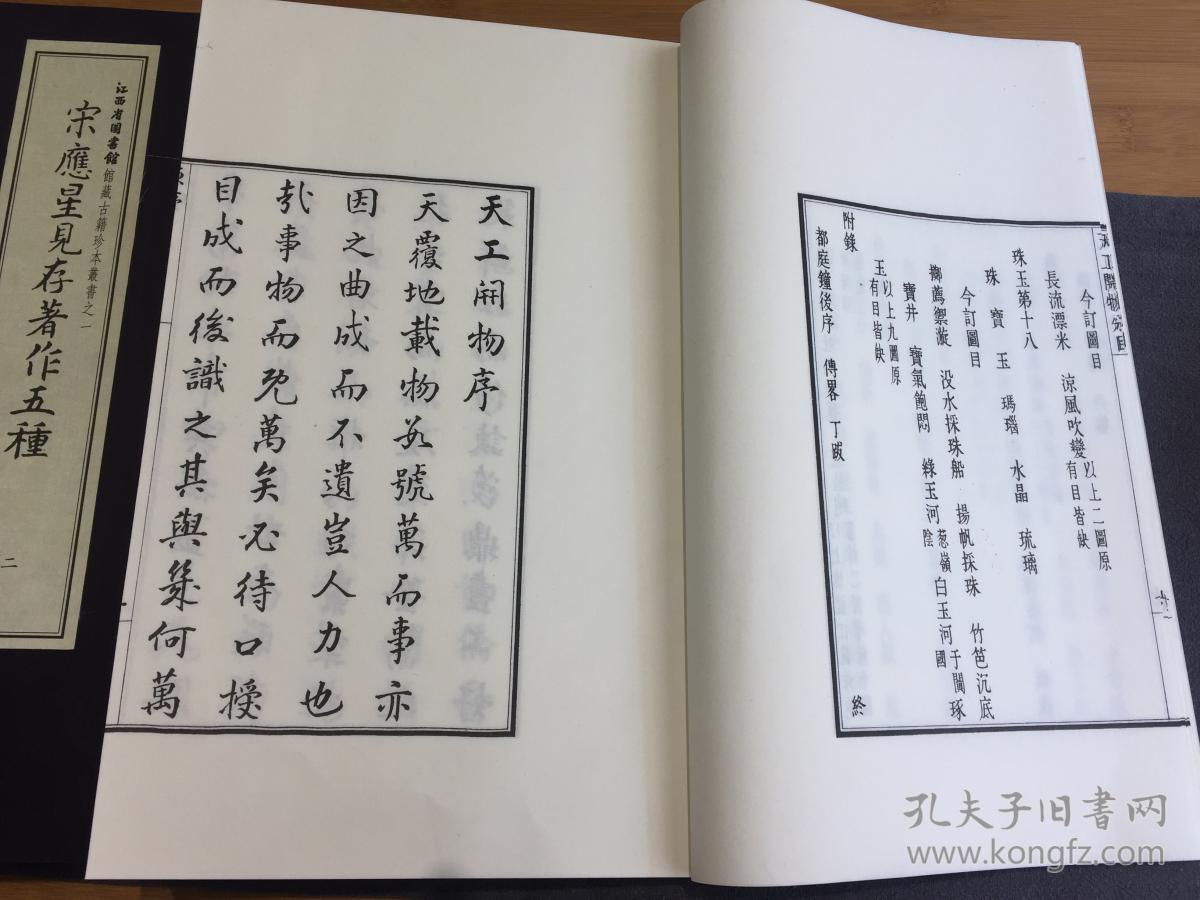 江西省圖書館
館藏古籍珍本叢書之一
宋應星見存著作五種
二
天工開物分目
今訂圖目
長流漂米 涼風吹變 以上二圖原
有目皆缺
珠玉第十八
珠 寶 玉 瑪瑙 水晶 琉璃
今訂圖目
擲薦禦漩 没水採珠船 揚帆採珠 竹笆沉底
寶井 寶氣飽悶 綠玉河 葱嶺陰 白玉河 于闐國 琢
玉 以上九圖原
有目皆缺
附錄
都庭鐘後序 傳畧 丁跋 終
天工開物序
天覆地載物數號萬而事亦
因之曲成而不遺豈人力也
㢤事物而既萬矣必待口授
目成而後識之其與幾何萬
孔夫子旧書网
www.kongfz.com